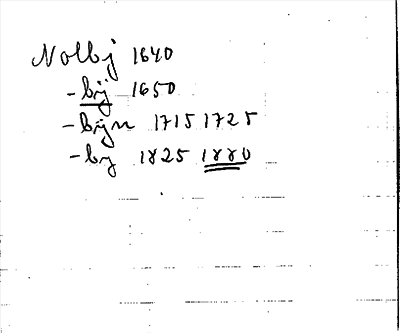 Nolbÿ 1640
- bÿ 1650
- bÿn 1715 1725
- by 1825 1880